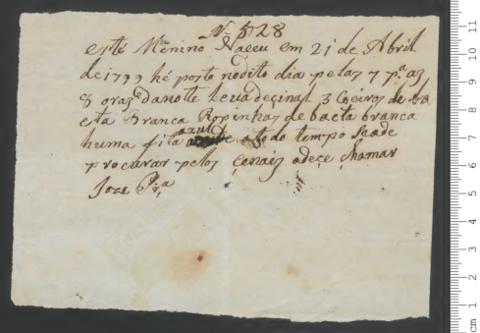 Nº 528
este Menino Naceu em 21 de Abril
de 1799 hé posto nodito dia pelas 7 pª as
8 oras danoite leva decinal 3 Coeiros de Ba
eta Branca Ropinhas de baeta branca
huma fita azul atodo tempo Sade
procurar pelos Çenais adeçe Chamar
Joze